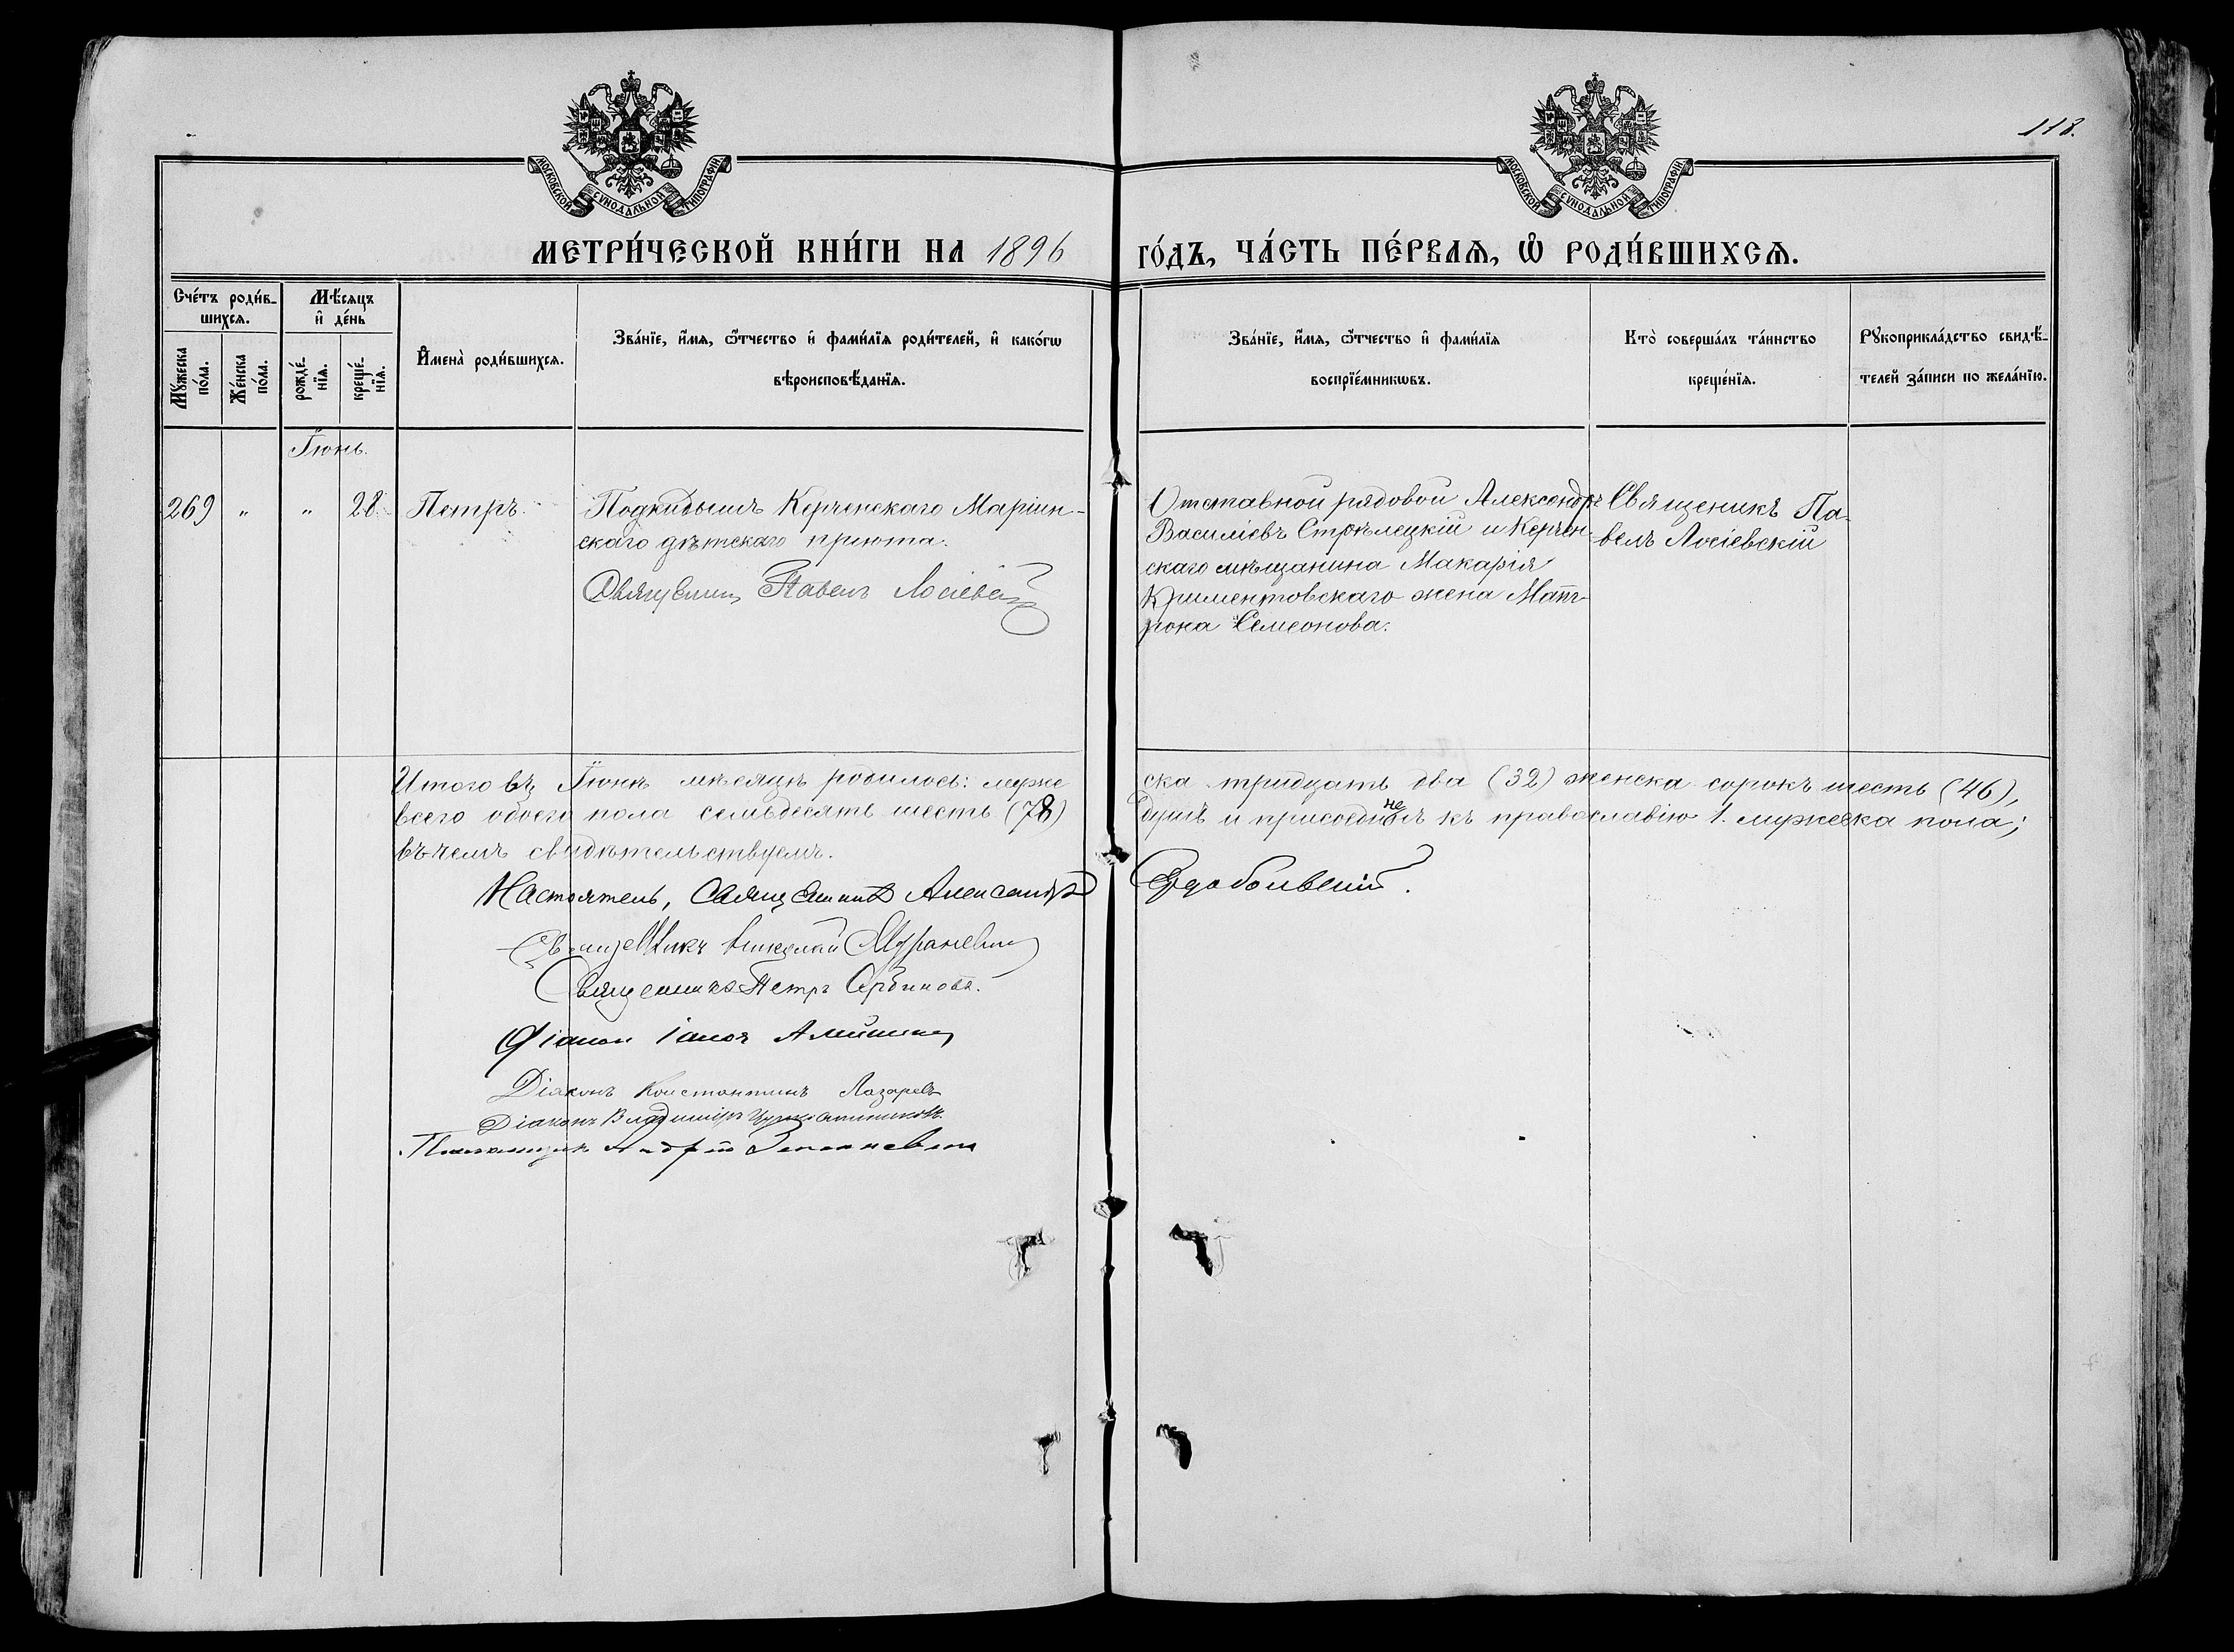 118.
МОСКОВСКОЙ СѴНОДАЛЬНОЙ ТИПОГРАФІИ
МОСКОВСКОЙ СѴНОДАЛЬНОЙ ТИПОГРАФІИ
МЕТРИ́ЧЕСКОЙ КНИ́ГИ НА 1896
ГО́ДЪ, ЧА́СТЬ ПЕ́РВАѦ, Ѡ҆ РОДИ́ВШИХСѦ.
Сче́тъ роди́в-
шихсѧ.
Мѣ́сѧцъ
и҆ де́нь
Мꙋ́жеска
по́ла.
Же́нска
по́ла.
рожде́-
нїѧ.
креще́-
нїѧ.
И҆мена̀ роди́вшихсѧ.
Зва́нїе, и҆́мѧ, ѻ҆́тчество и҆ фами́лїѧ роди́телей, и҆ како́гѡ
вѣроисповѣ́данїѧ.
Зва́нїе, и҆́мѧ, ѻ҆́тчество и҆ фами́лїѧ
воспрїе́мникѡвъ.
Кто̀ соверша́лъ та́инство
креще́нїѧ.
Рꙋкоприкла́дство свидѣ́-
телей за́писи по жела́нїю.
Іюнь.
269 " " 28. Петръ.
Подкидышъ Керченскаго Маріин-
скаго дѣтскаго пріюта.
Священникъ Павелъ Лосіевскій
Отставной рядовой Александръ
Василіевъ Стрѣлецкій и Керчен-
скаго мѣщанина Макарія
Криментовскаго жена Матр-
рона Семеонова.
Священикъ Па-
велъ Лосіевскій
Итого въ Іюнѣ мѣсяцѣ родилось: муже
ска тридцать два (32) женска сорокъ шесть (46),
всего обоего пола семьдесять шесть (78)
душъ и присоединенъ къ православію 1. мужеска пола;
въ чемъ свидѣтельствуемъ.
Настоятель, Священникъ Александръ
Сердобольскій.
Священникъ Николай Мураневичъ
Священникъ Петръ Сербиновъ.
Діаконъ
Діаконъ Константинъ Лазаревъ
Діаконъ Владиміръ
Псаломщикъ Андрей